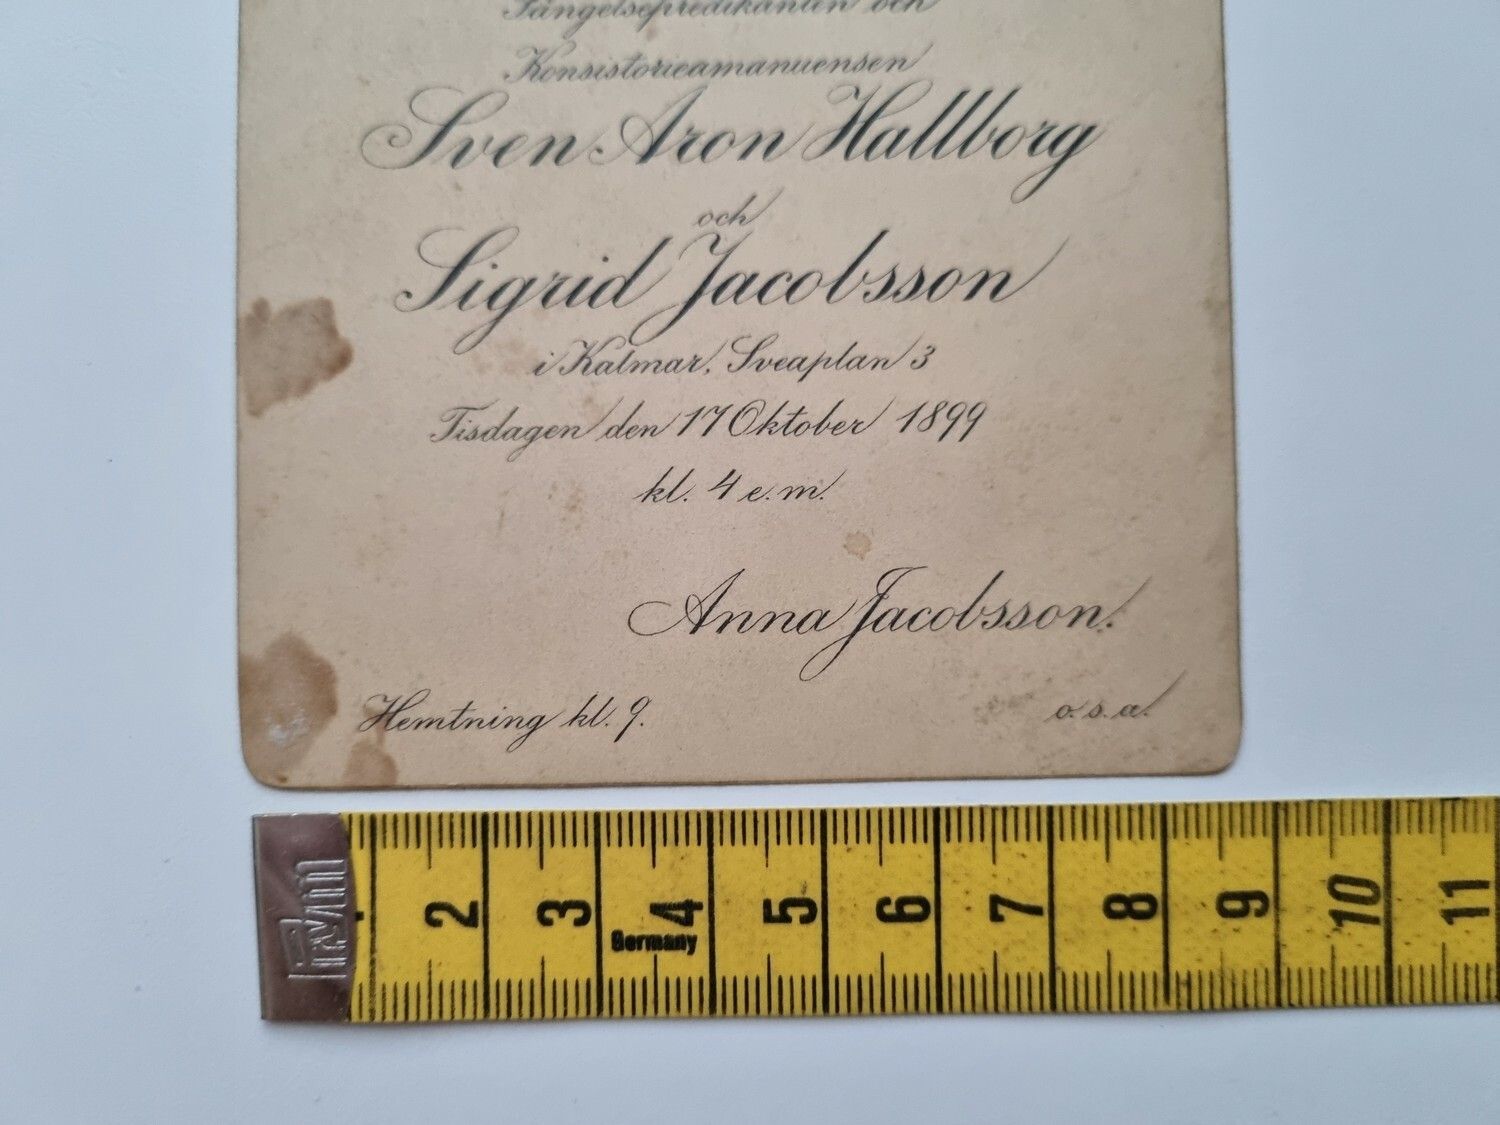 Fängelsepredikanten och
Konsistorieamanuensen
Sven Aron Hallborg
och
Sigrid Jacobsson
i Kalmar, Sveaplan 3
Tisdagen den 17 Oktober 1899
kl. 4 e.m.
Anna Jacobsson.
Hemtning kl. 9.
o.s.a.
2 3 4 5 6 7 8 9 10 11
Germany